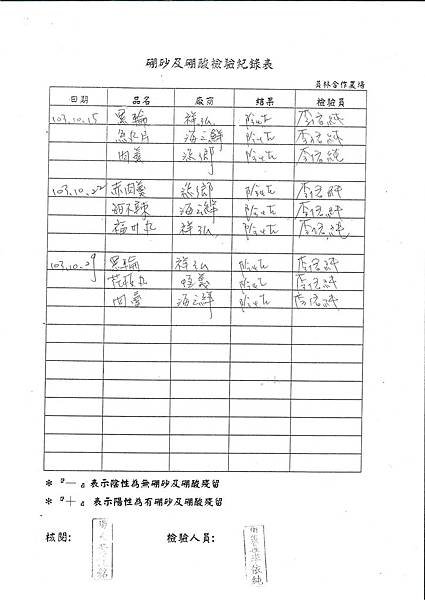 硼砂及硼酸檢驗紀錄表
員林合作農場
日期 品名 廠商 結果 檢驗員
103.10.15 黑輪 祥弘 陰性 李依純
魚丸片 海之鮮 陰性 李依純
肉羹 添鄉 陰性 李依純
103.10.22 赤肉羹 添鄉 陰性 李依純
海之鮮 陰性 李依純
福州丸 祥弘 陰性 李依純
103.10.29 黑輪 祥弘 陰性 李依純
花枝丸 陰性 李依純
肉羹 海之鮮 陰性 李依純
* 『—』表示陰性為無硼砂及硼酸殘留
* 『+』表示陽性為有硼砂及硼酸殘留
核閱: 檢驗人員: